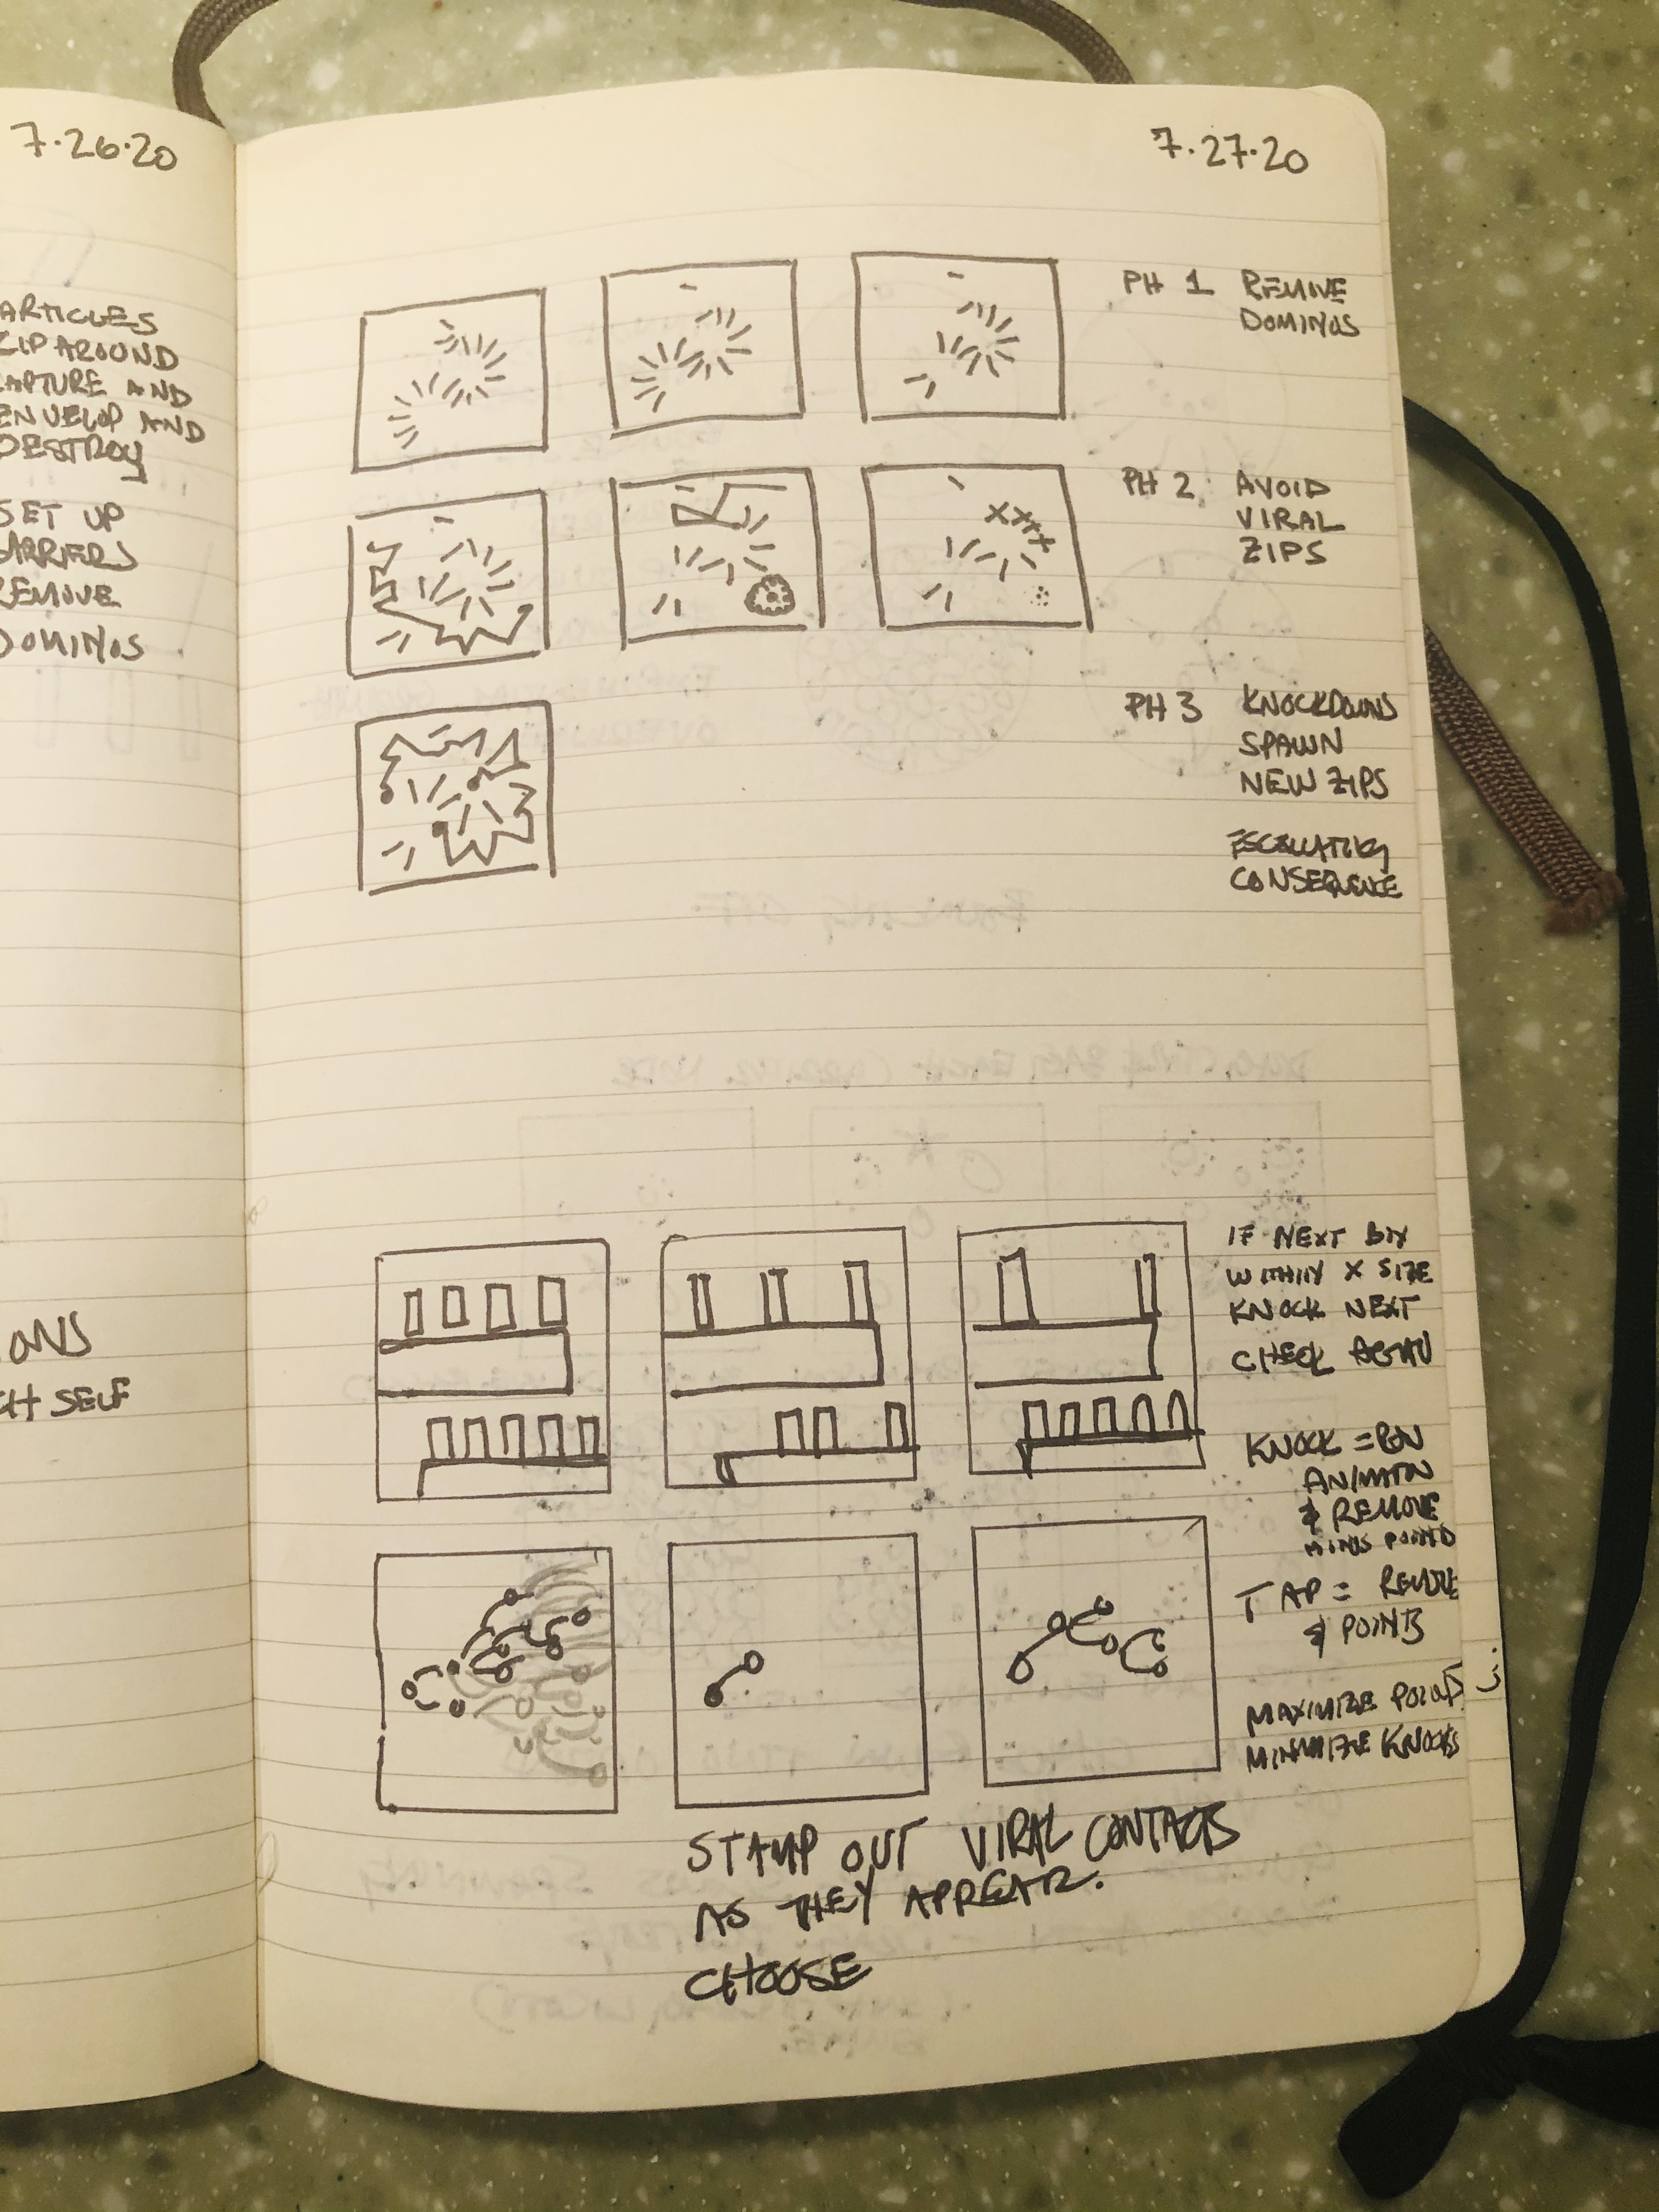 7.26.20
ARTICLES
ZIP AROUND
CAPTURE AND
ENVELOP AND
DESTROY
SET UP
BARRIERS
REMOVE
DOMINOS
ONS
CH SELF
7.27.20
PH 1 REMOVE
DOMINOS
PH 2 AVOID
VIRAL
ZIPS
PH 3 KNOCKDOWNS
SPAWN
NEW ZIPS
ESCALATING
CONSEQUENCE
IF NEXT BOX
WITHIN X SIZE
KNOCK NEXT
CHECK AGAIN
KNOCK = RUN
ANIMATN
& REMOVE
MINUS POINTS
TAP = REMOVE
& POINTS
MAXIMIZE POINTS
MINIMIZE KNOCKS
STAMP OUT VIRAL CONTACTS
AS THEY APPEAR.
CHOOSE